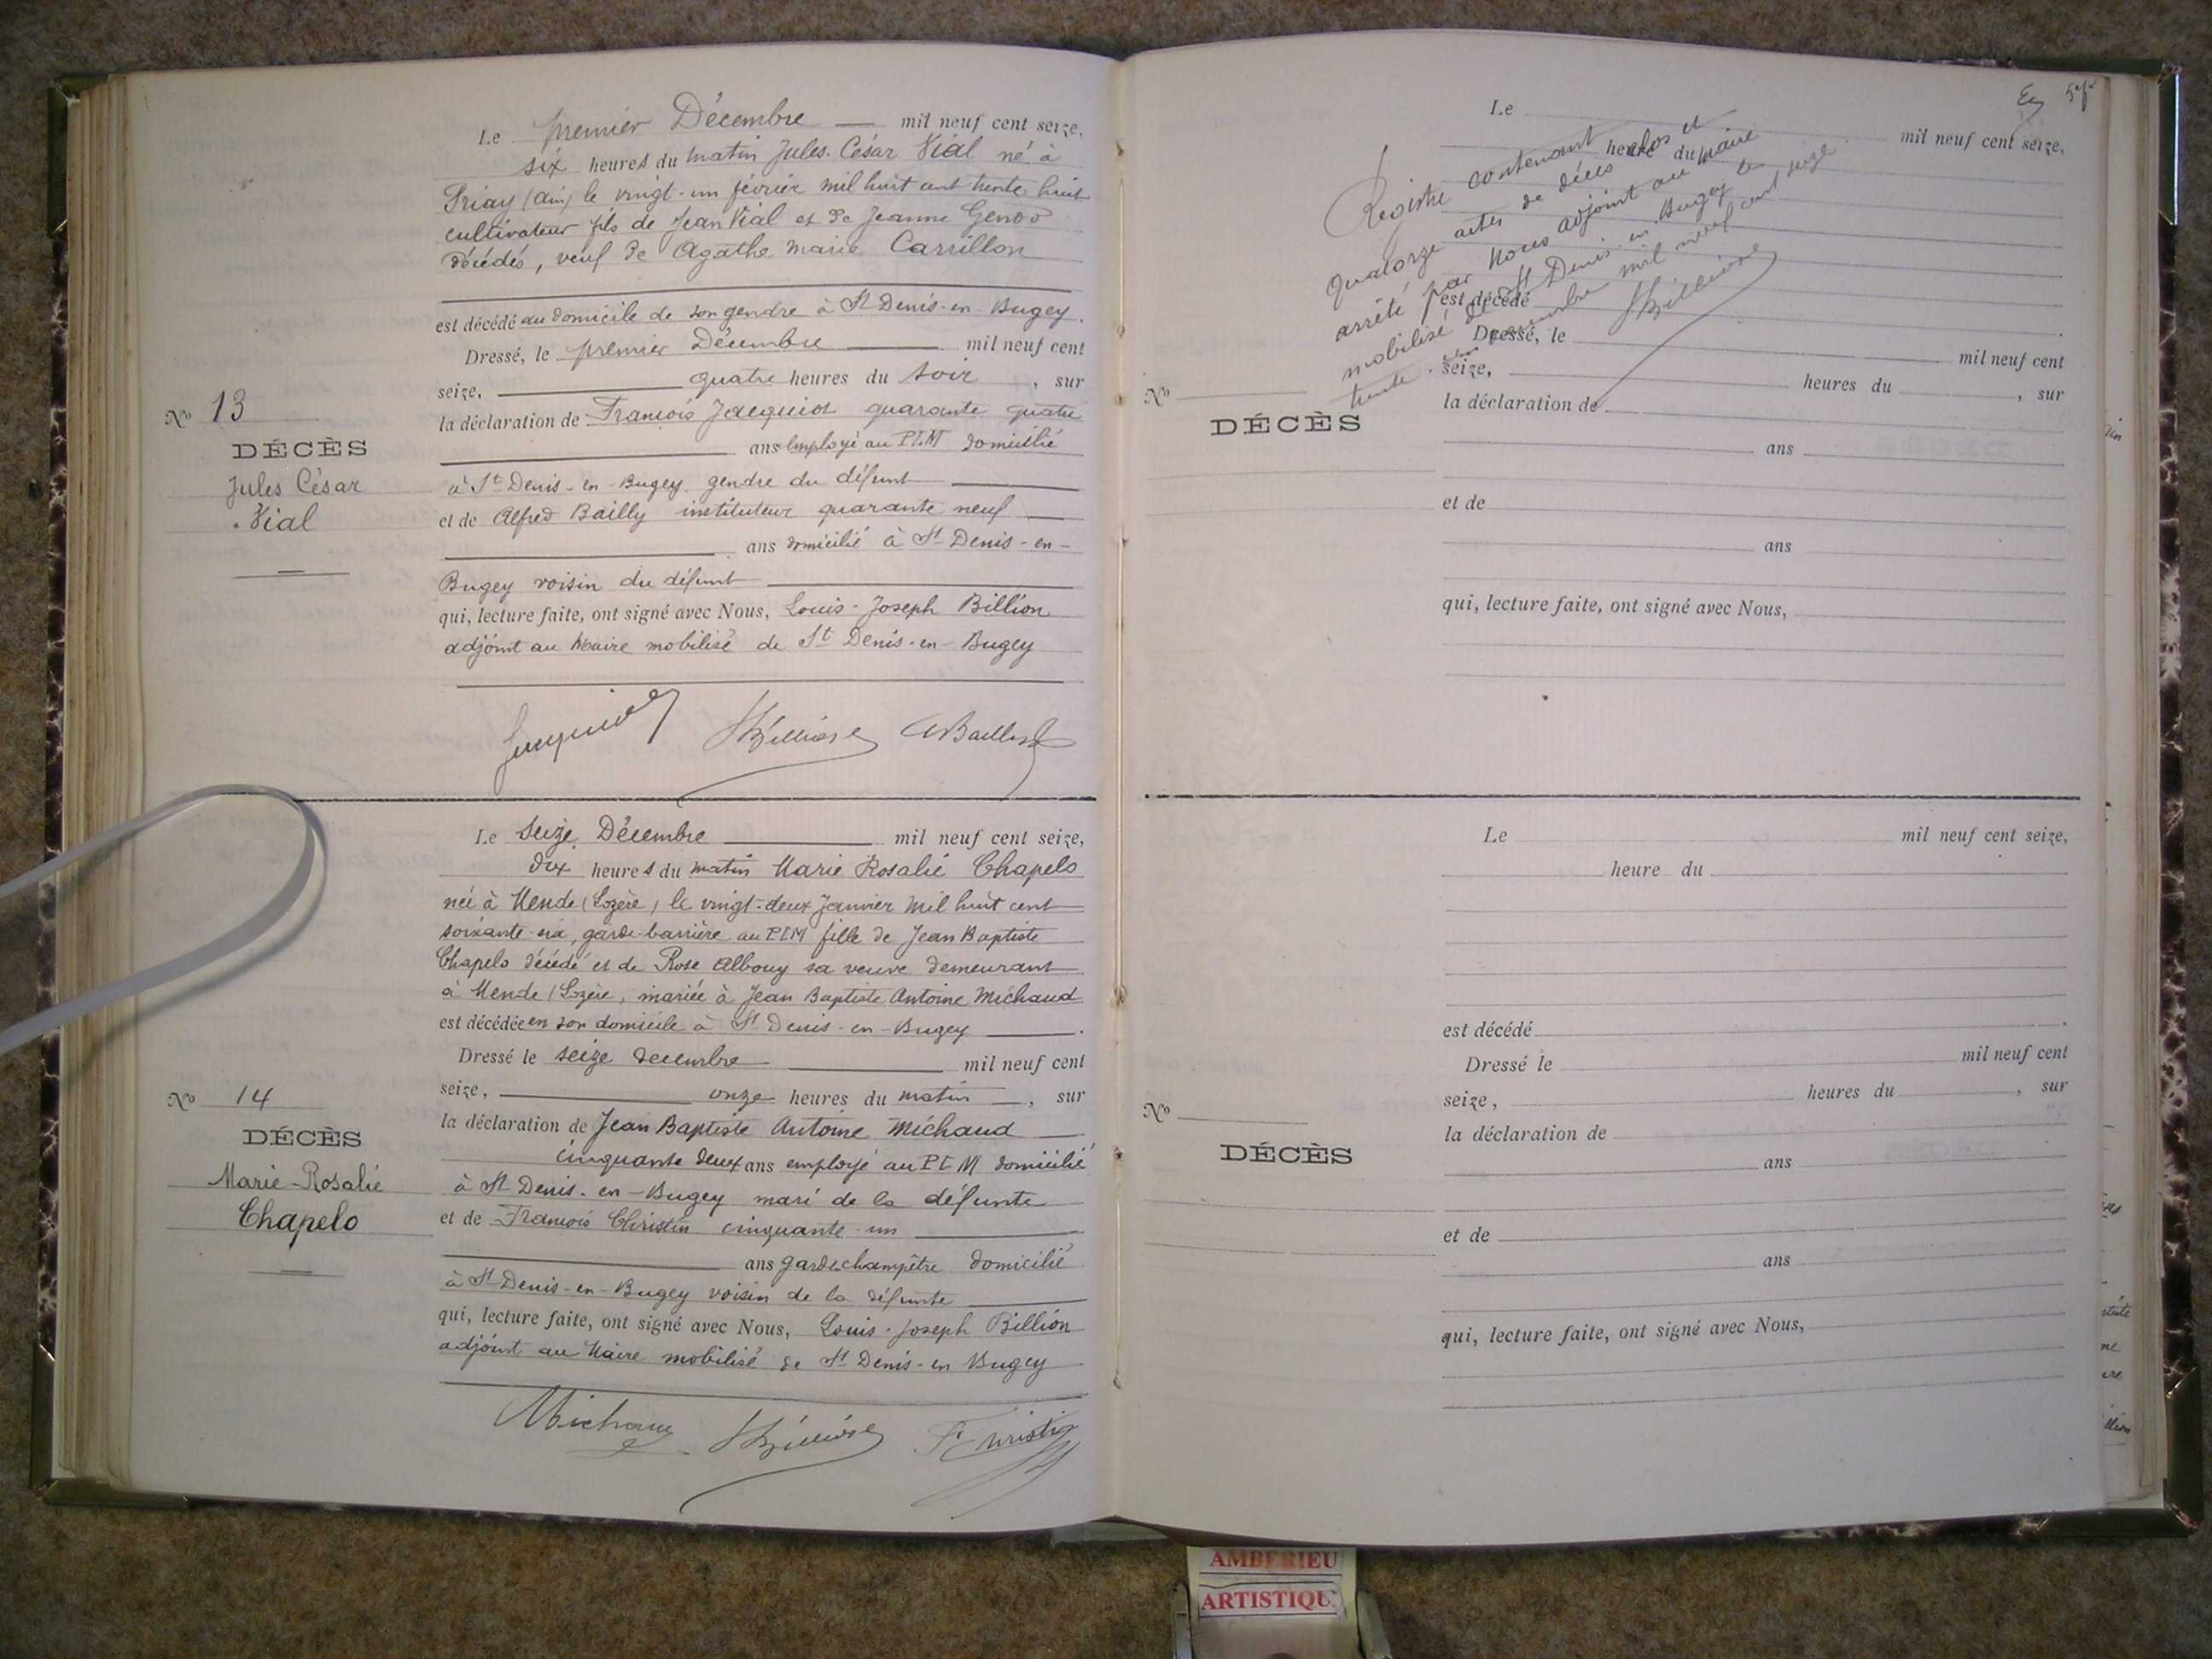 Le premier Décembre mil neuf cent seize,
six heures du matin Jules César Vial né à
Priay (Ain) le vingt-un février mil huit cent trente huit
cultivateur fils de Jean Vial et de Jeanne
décédés, veuf de Agathe Marie Carrillon
est décédé au domicile de son gendre à St Denis-en-Bugey.
Dressé, le premier Décembre mil neuf cent
seize, quatre heures du soir, sur
la déclaration de François Jacquiot quarante quatre
ans employé au PLM domicilié
à St Denis-en-Bugey gendre du défunt
et de Alfred Bailly instituteur quarante neuf
ans domicilié à St Denis-en-
Bugey voisin du défunt
qui, lecture faite, ont signé avec Nous, Louis-Joseph Billion
adjoint au Maire mobilisé de St Denis-en-Bugey
No 13
DÉCÈS
Jules César
Vial
Jacquiot Billion ABailly
Le Seize Décembre mil neuf cent seize,
dix heures du matin Marie Rosalie Chapelo
née à Mende (Lozère) le vingt-deux Janvier mil huit cent
soixante-six, garde-barrière au PLM fille de Jean Baptiste
Chapelo décédé et de Rose Albouy sa veuve demeurant
à Mende (Lozère, mariée à Jean Baptiste Antoine Michaud
est décédée en son domicile à St Denis-en-Bugey.
Dressé le seize decembre mil neuf cent
seize, onze heures du matin, sur
la déclaration de Jean Baptiste Antoine Michaud
cinquante deux ans employé au PLM domicilié
à St Denis-en-Bugey mari de la défunte
et de François Christin cinquante-un
ans garde champêtre domicilié
à St Denis-en-Bugey voisin de la défunte
qui, lecture faite, ont signé avec Nous, Louis-Joseph Billion
adjoint au Maire mobilisé de St Denis-en Bugey
No 14
DÉCÈS
Marie-Rosalie
Chapelo
Michaud Billion Christin
Registre contenant
quatorze actes de décès clos et
arrêté par Nous adjoint au maire
mobilisé de St Denis-en-Bugey le
trente-un décembre mil neuf cent seize
Billion
Le mil neuf cent seize,
heure du
est décédé
Dressé, le mil neuf cent
seize, heures du, sur
la déclaration de
ans
et de
ans
qui, lecture faite, ont signé avec Nous,
No
DÉCÈS
Le mil neuf cent seize,
heure du
est décédé
Dressé le mil neuf cent
seize, heures du, sur
la déclaration de
ans
et de
ans
qui, lecture faite, ont signé avec Nous,
No
DÉCÈS
AMBERIEU
ARTISTIQU